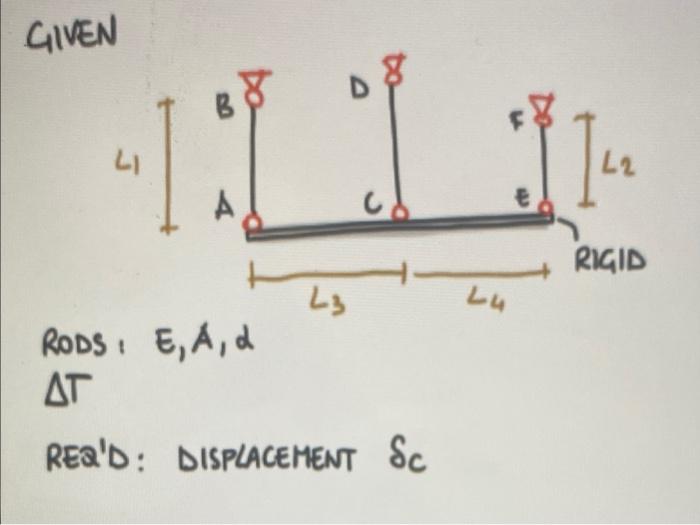 GIVEN
D
B
F
L1
L2
A
C
E
RIGID
L3
L4
RODS: E, A, α
ΔT
REQ'D: DISPLACEMENT δc